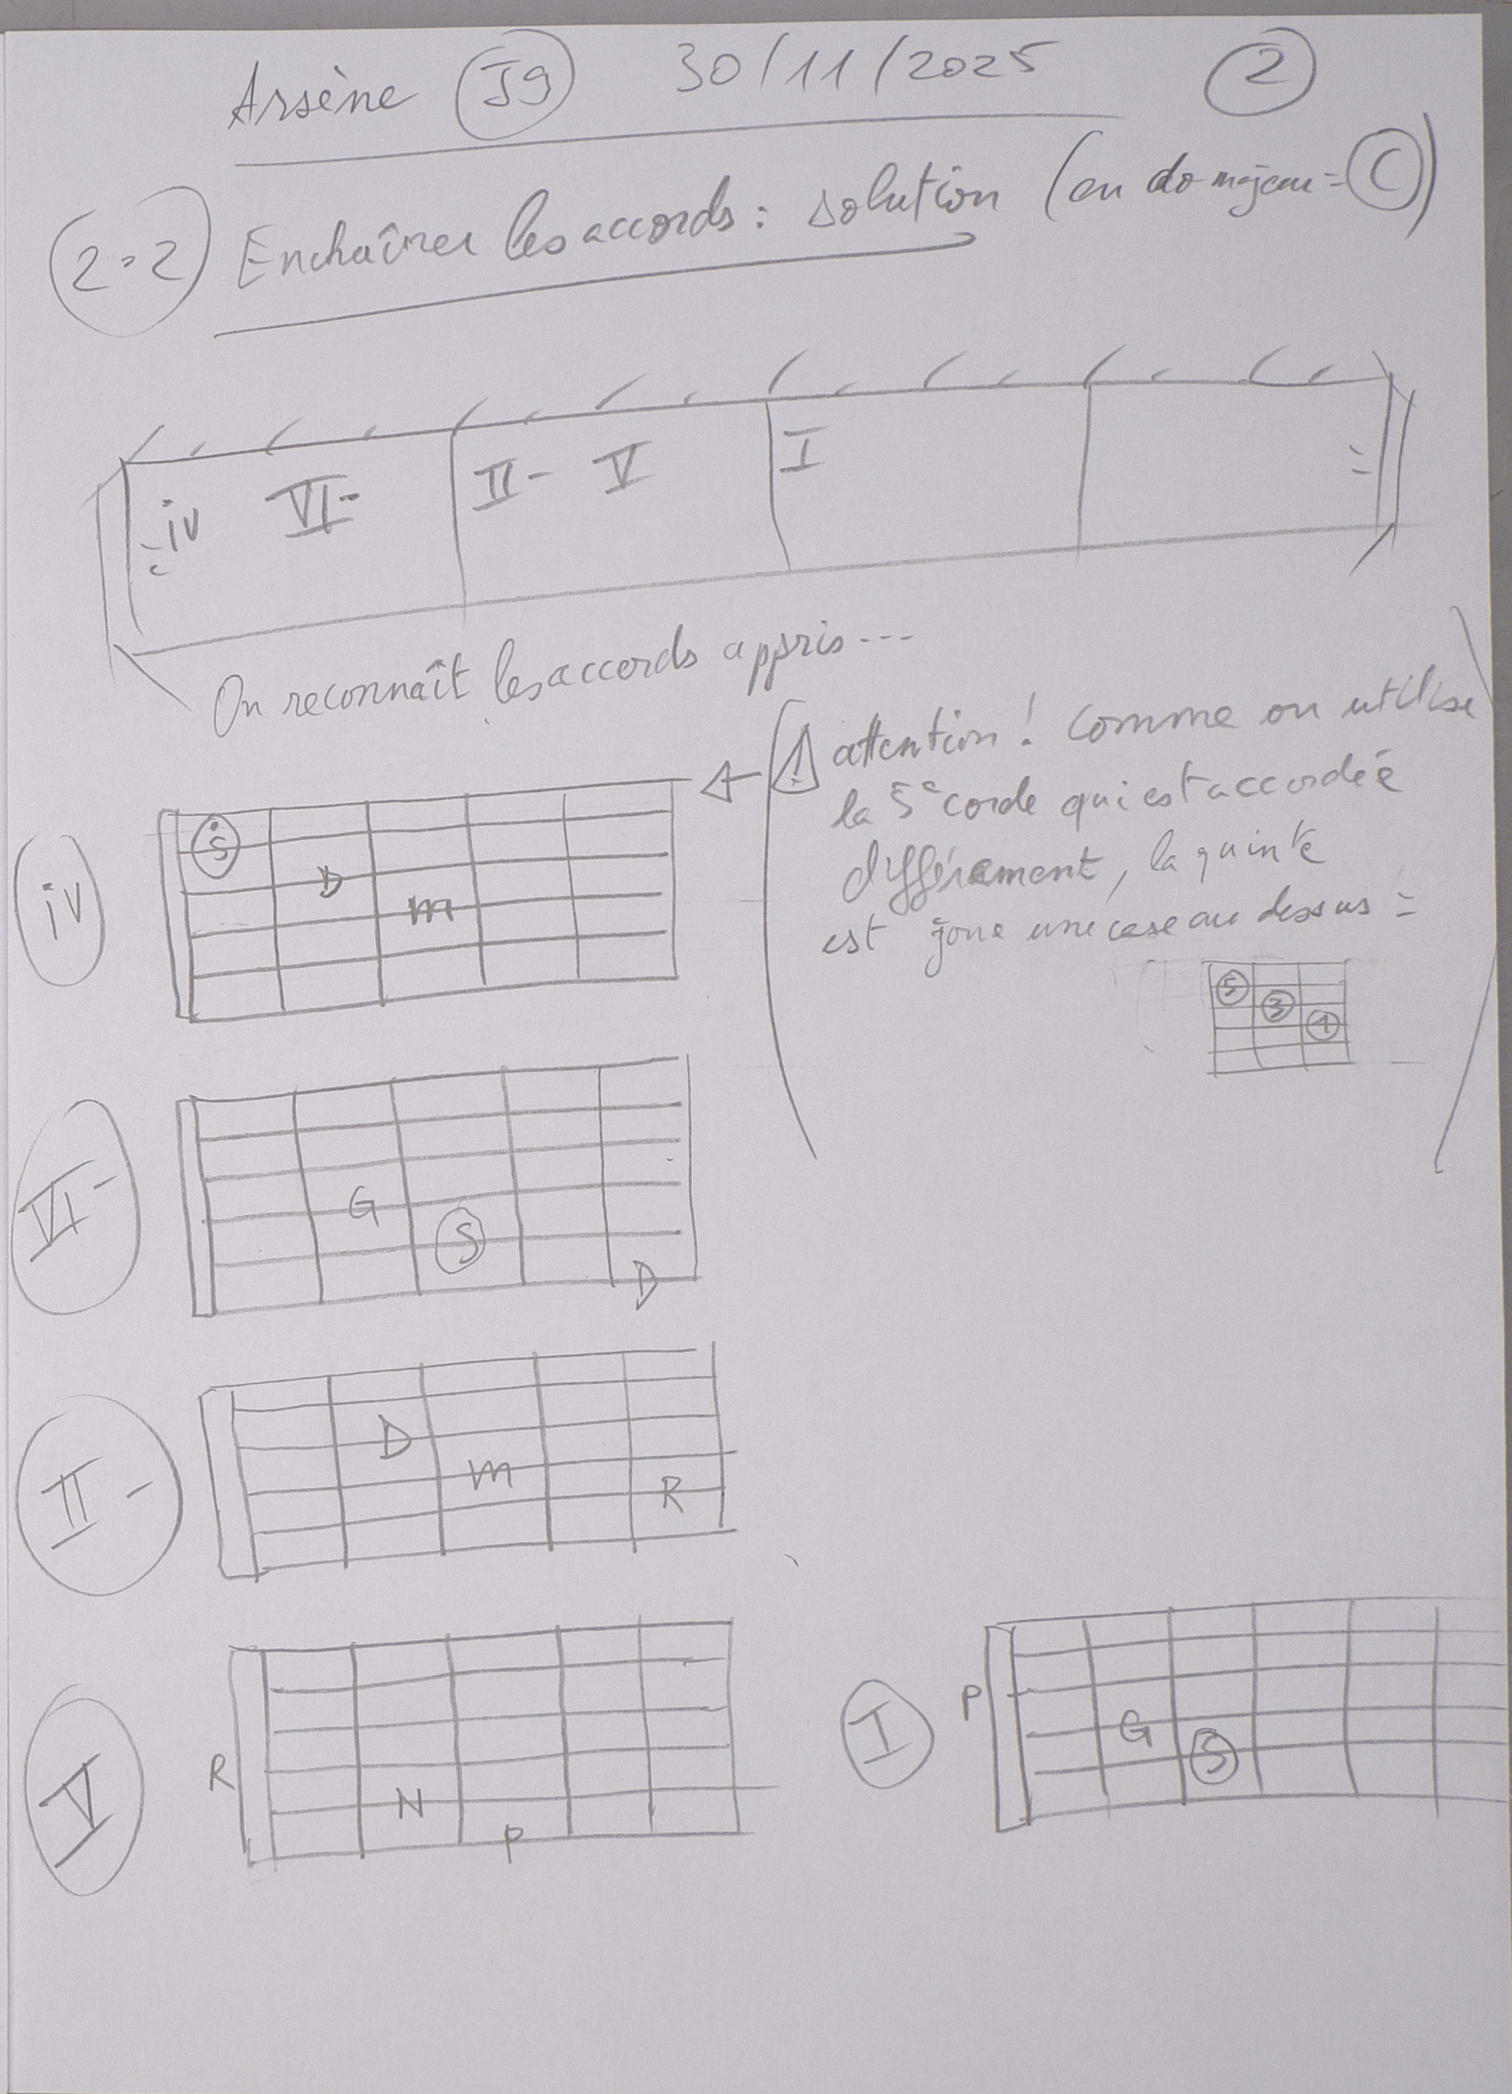 Arsène J9 30/11/2025 2
2.2 Enchaîner les accords : solution (en do majeur = C)
iv VI- II- V I
On reconnaît les accords appris...
attention ! Comme on utilise
la 5e corde qui est accordée
différement, la quinte
est joue une case au dessus =
iv
S
D
m
5
3
1
VI-
G
S
D
II-
D
m
R
V
R
N
P
I
P
G
S